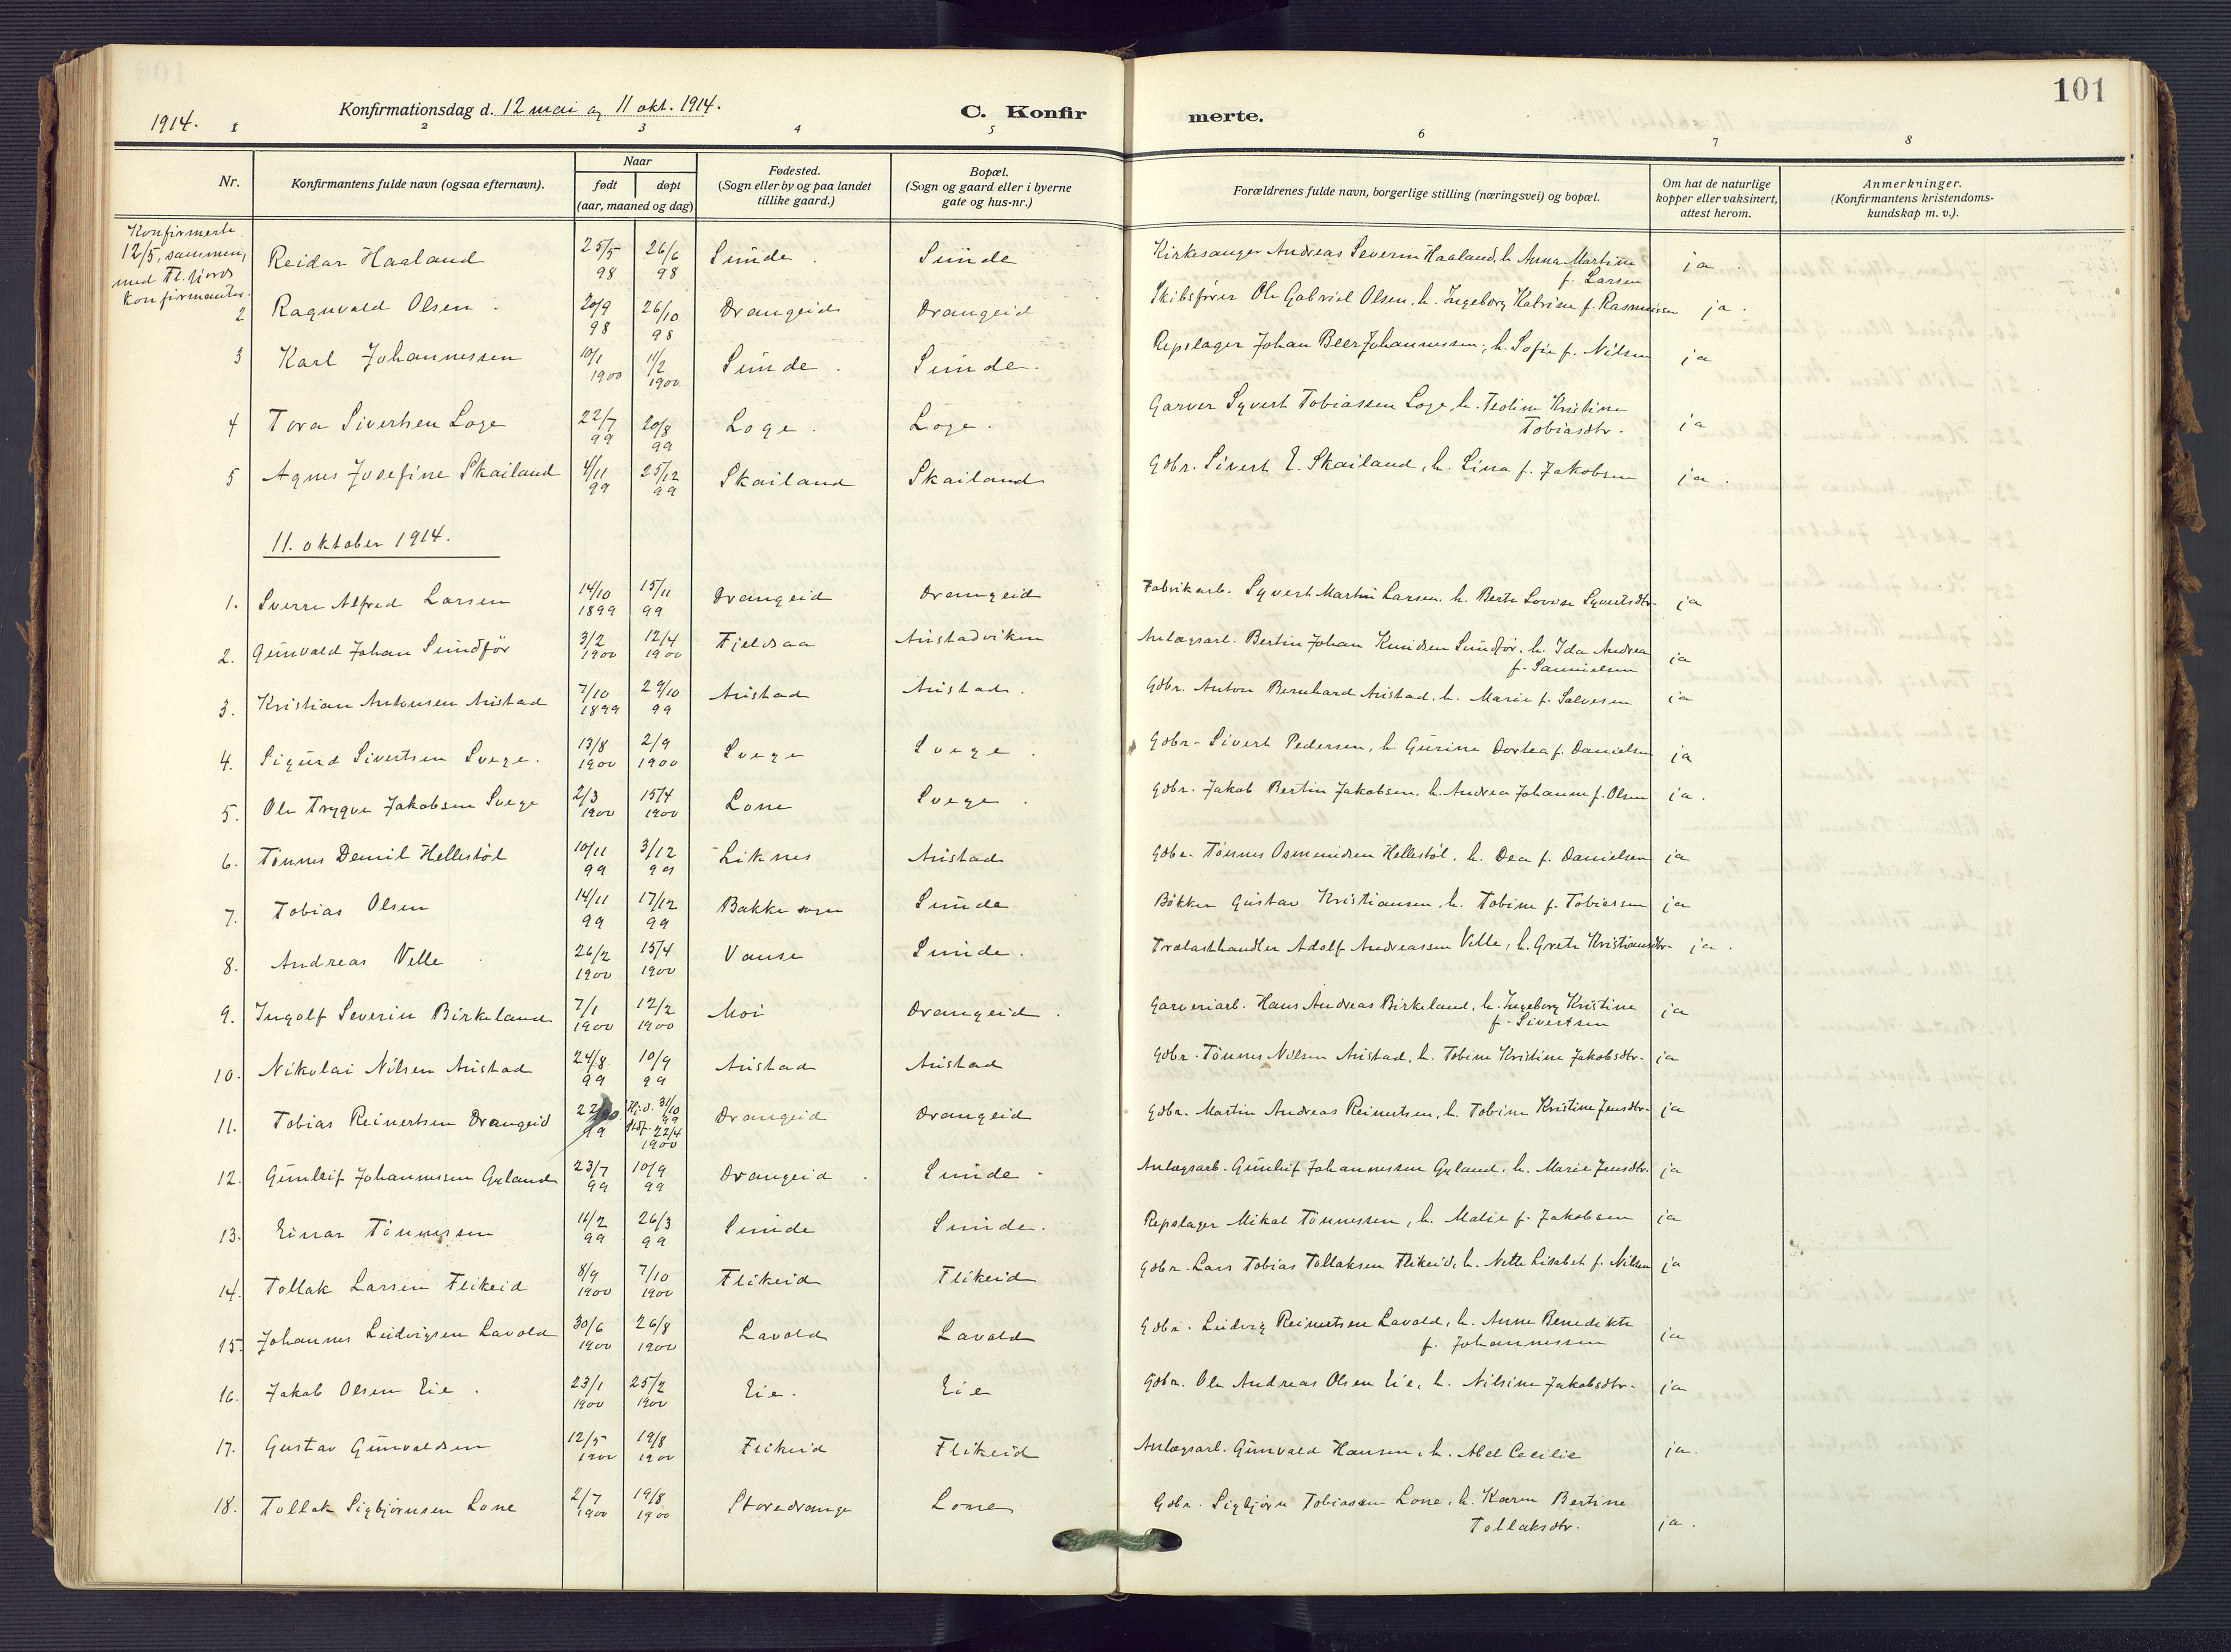 101
1914. Konfirmationsdag d. 12 mai og 11 okt. 1914. C. Konfirmerte.
1 2 3 4 5 6 7 8
Nr.
Konfirmantens fulde navn (ogsaa efternavn).
Naar
født døpt
(aar, maaned og dag)
Fødested.
(Sogn eller by og paa landet
tillike gaard.)
Bopæl.
(Sogn og gaard eller i byerne
gate og hus-nr.)
Forældrenes fulde navn, borgerlige stilling (næringsvei) og bopæl.
Om hat de naturlige
kopper eller vaksinert,
attest herom.
Anmerkninger.
(Konfirmantens kristendoms-
kundskap m. v.).
Konfirmerte
12/5, sammen
med Fl. fjords
konfirmanter.
Reidar Haaland 25/5 98 26/6 98 Sunde Sunde Kirkesanger Andreas Severin Haaland, h. Anna Martine f. Larsen ja
2 Ragnvald Olsen 20/9 98 26/10 98 Drangeid Drangeid Skibsfører Ole Gabriel Olsen, h. Ingeborg Katrine f. Rasmussen ja
3 Karl Johannessen 10/1 1900 11/2 1900 Sunde Sunde Repslager Johan Beer Johannessen, h. Sofie f. Nilsen ja
4 Tora Sivertsen Loge 22/7 99 20/8 99 Loge Loge Garver Syvert Tobiassen Loge, h. Teoline Kristine Tobiasdtr. ja
5 Agnes Josefine Skailand 4/11 99 25/12 99 Skailand Skailand Gdbr. Sivert E. Skailand, h. Lina f. Jakobsen ja
11. oktober 1914.
1. Sverre Alfred Larsen 14/10 1899 15/11 99 Drangeid Drangeid Fabrikarb. Syvert Martin Larsen, h. Berte Lovise Syvertsdtr. ja
2. Gunvald Johan Sundför 3/2 1900 12/4 1900 Fjeldsaa Austadviken Anlægsarb. Bertin Johan Knudsen Sundför, h. Ida Andrea f. Samuelsen ja
3. Kristian Antonsen Austad 7/10 1899 29/10 99 Austad Austad Gdbr. Anton Bernhard Austad, h. Marie f. Salvesen ja
4. Sigurd Sivertsen Svege. 13/8 1900 2/9 1900 Svege Svege Gdbr. Sivert Pedersen, h. Gurine Dortea f. Danielsen ja
5. Ole Trygve Jakobsen Svege 2/3 1900 15/4 1900 Lone Svege Gdbr. Jakob Bertin Jakobsen, h. Andrea Johanne f. Olsen ja.
6. Tönnes Demil Hellestöl 10/11 99 3/12 99 Liknes Austad Gdbr. Tönnes Osmundsen Hellestöl, h. Dea f. Danielsen ja
7. Tobias Olsen 14/11 99 17/12 99 Bakke sogn Sunde Bökker Gustav Kristiansen, h. Tobine f. Tobiassen ja
8. Andreas Velle 26/2 1900 15/4 1900 Vanse Sunde. Trælasthandler Adolf Andreassen Velle, h. Grete Kristiansdtr. ja.
9. Ingolf Severin Birkeland 7/1 1900 12/2 1900 Moi Drangeid Garveriarb. Hans Andreas Birkeland, h. Ingeborg Kristine f. Sivertsen ja
10. Nikolai Nilsen Austad 24/8 99 10/9 99 Austad Austad Gdbr. Tönnes Nilsen Austad, h. Tobine Kristine Jakobsdtr. ja
11. Tobias Reinertsen Drangeid 99 Hj.d. 31/10 99 Stdf. 22/4 1900 Drangeid Drangeid Gdbr. Martin Andreas Reinertsen, h. Tobine Kristine Jensdtr. ja
12. Gunleif Johannessen Gyland 23/7 99 10/9 99 Drangeid Sunde Anlægsarb. Gunleif Johannessen Gyland, h. Marie Jensdtr. ja
13. Einar Tönnessen 11/2 99 26/3 99 Sunde Sunde. Repslager Mikal Tönnessen, h. Malie f. Jakobsen ja
14. Tollak Larsen Flikeid 8/9 1900 7/10 1900 Flikeid Flikeid Gdbr. Lars Tobias Tollaksen Flikeid, h. Nelle Lisabet f. Nilsen ja
15. Johannes Ludvigsen Lavold 30/6 1900 26/8 1900 Lavold Lavold Gdbr. Ludvig Reinertsen Lavold, h. Anne Benedikte f. Johannessen ja
16. Jakob Olsen Eie. 23/1 1900 25/2 1900 Eie. Eie Gdbr. Ole Andreas Olsen Eie, h. Nilsine Jakobsdtr. ja
17. Gustav Gunvaldsen 12/5 1900 19/8 1900 Flikeid Flikeid Anlægsarb. Gunvald Hansen, h. Abel Cecilie ja.
18. Tollak Sigbjörnsen Lone 2/7 1900 19/8 1900 Storedrange Lone Gdbr. Sigbjörn Tobiassen Lone, h. Karen Bertine Tollaksdtr. ja.